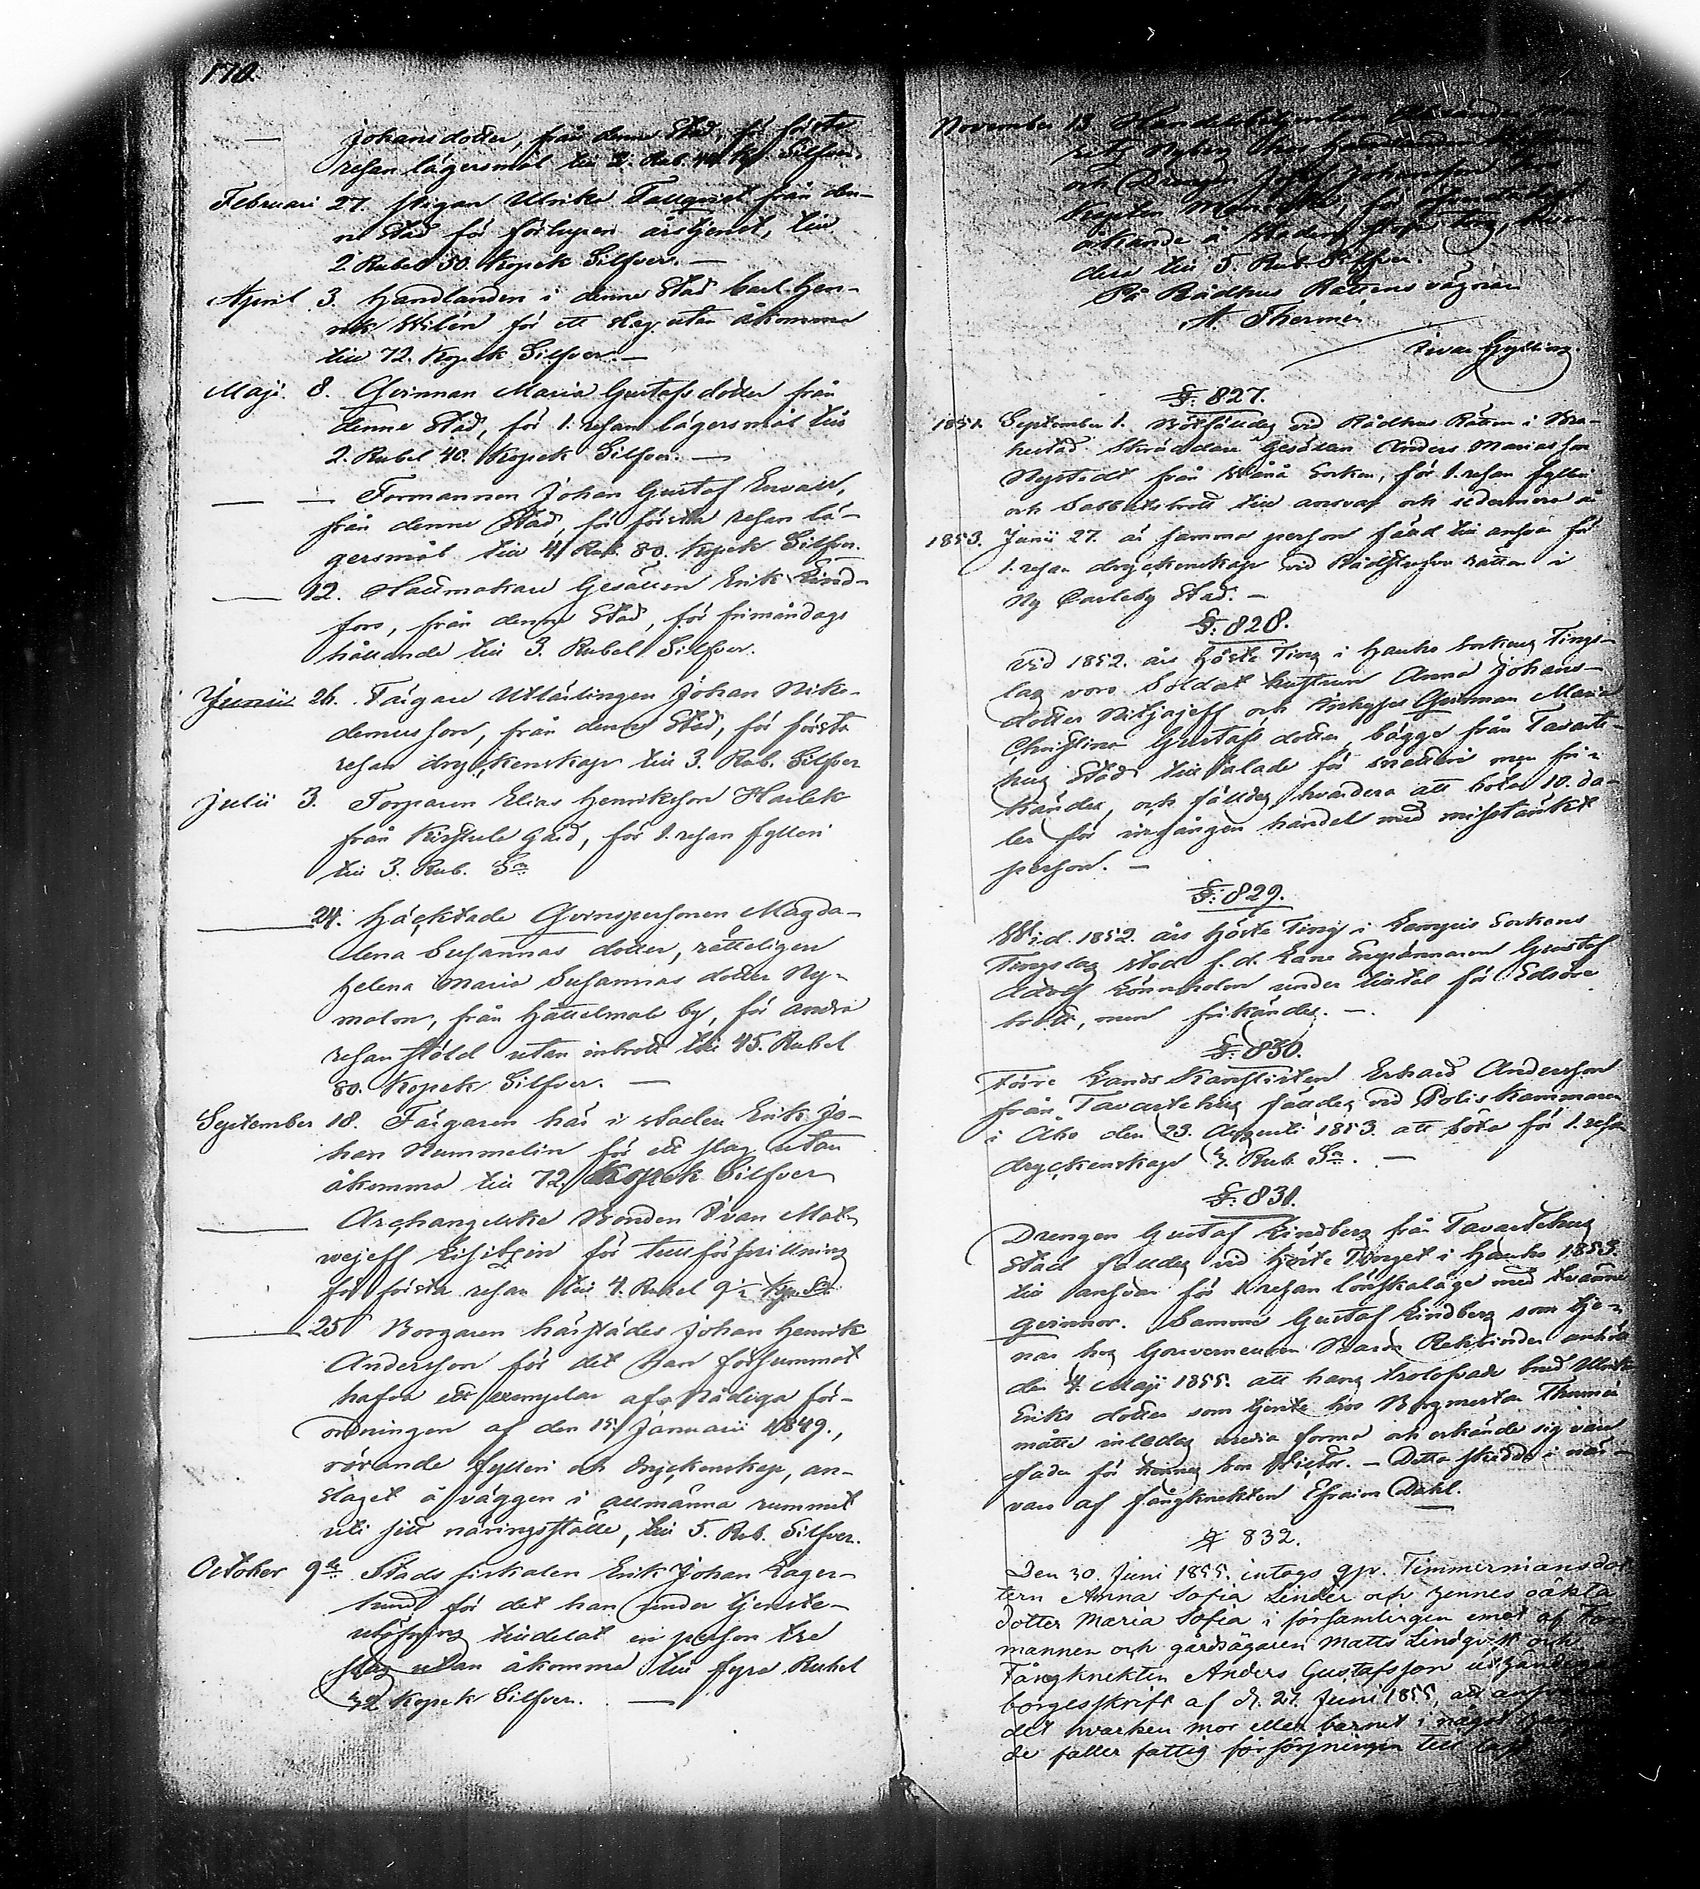 170.
Johansdotter, från denne Stad, för första
resan lägersmål till 2. Rub. 40. Kop. Silfver.
Februari 27. Pigan Ulrika Tallqvist från den-
ne Stad för förlupen årstjenst, till
2 Rubel 50. Kopek Silfver. —
April 3. Handlanden i denne Stad Carl Hen-
rik Wilén för ett slag utan åkomma
till 72. Kopek Silfver. —
Maji. 8. Qvinnan Maria Gustafsdotter från
denne Stad, för 1. resan lägersmål till
2. Rubel 40. Kopek Silfver. —
— — Formannen Johan Gustaf
från denne Stad, för första resan lä-
gersmål till 4 Rub. 80. Kopek Silfver.
— 12. Hattmakare Gesällen Erik
fors, från denne Stad, för frimåndags
hållande till 3. Rubel Silfver.
Junii 26. Färgare Utlärlingen Johan Niko-
demusson, från denne Stad, för första
resan dryckenskap till 3. Rub. Silfver
Julii 3. Torparen Elias Henriksson Harlek
från Kirstula Gård, för 1. resan fylleri
till 3. Rub. Sr.
— 24. Häcktade Qvinspersonen Magda-
lena Susannas dotter, rätteligen
Helena Maria Susannas dotter Ny-
malm, från Hattelmala by, för andra
resan stöld utan inbrott till 45. Rubel
80. Kopek Silfver. —
September 18. Färgaren här i staden Erik Jo-
han Nummelin för ett slag utan
åkomma till 72. Kopek Silfver
— Archangelska Bonden Ivan Mat-
wejeff för tullförsnillning
för första resan till 4. Rubel 9½ Kop. Sr.
— 25 Borgaren härstädes Johan Henrik
Andersson för det han försummat
hafva ett exemplar af Nådiga för-
ordningen af den 15. Januarii 1849.,
rörande fylleri och dryckenskap, an-
slaget å väggen i allmänna rummet
uti sitt näringsställe, till 5. Rub. Silfver.
October 9de Stads fiskalen Erik Johan Lager-
lund för det han under tjenste-
utöfning tilldelat en person tre
slag utan åkomma till fyra Rubel
32 Kopek Silfver. —
November 13
och Drengen Johansson hos
Kapten för
åkande å stadens torg,
dera till 5. Rub. Silfver.
På Rådhus Rättens vägnar
A. Thermén
Ivar Hylling.
§. 827.
1851. September 1. Bötfälldes vid Rådhus Rätten i Bra-
hestad Skräddare Gesällen Anders Mariasson
Nystedt från Wånå Socken, för 1. resan fylleri
och Sabbatsbrott till ansvar och sedermera är
1853. Junii 27. är samma person fälld till ansvar för
1. resan dryckenskap vid Rådstufvu rätten i
Ny Carleby Stad. —
§. 828.
Vid 1852. års Höste Ting i Hauho Sockens Tings-
lag voro Soldat hustrun Anna Johans-
dotter Nikjajeff och Qvinnan Maria
Christina Gustafs dotter, bägge från Tavaste-
hus Stad till talade för snatteri men fri-
kändes, och fälldes hvardera att böta 10. da-
ler för ingången handel med misstänkt
person. —
§. 829.
Wid. 1852. års Höste Ting i Lampis Sockens
Tingslag stod f. d. Läns Gustaf
Adolf Lönnholm under tiltal för Edsöre
brott, men frikändes. —.
§. 830.
Förre Lands Kanslisten Erhard Andersson
från Tavastehus fälldes vid Polis Kammaren
i Åbo den 23. Augusti 1853. att böta för 1. resan
dryckenskap 3. Rub. Sr. —
§. 831.
Drengen Gustaf Lindberg från Tavastehus
Stad fälldes vid Höste Tinget i Hauho 1853.
till ansvar för 1. resan lönskaläge med tvänne
qvinnor. Samme Gustaf Lindberg som tje-
nar hos Gouverneuren Baron Rehbinder anhöll
den 4. Maji 1855. att hans trolofvade brud Ulrika
Eriks dotter som tjente hos Borgmästar Thermén
måtte inledas under forma och erkände sig vara
fader för hennes son Victor. — Detta skedde i när-
varo af fångknekten Efraim Dahl.
§ 832.
Den 30. Juni 1855. intogs qpr. Timmermansdot-
tern Anna Sofia Linder och hennes oäkta
dotter Maria Sofia i församlingen emot af For-
mannen och gårdsägaren Matts Lindqvist och
Fångknekten Anders Gustafsson utgifven
borgesskrift af d. 27. Juni 1855, att ansvara
det hvarken mor eller barnet i något
de faller fattig försörjningen till last